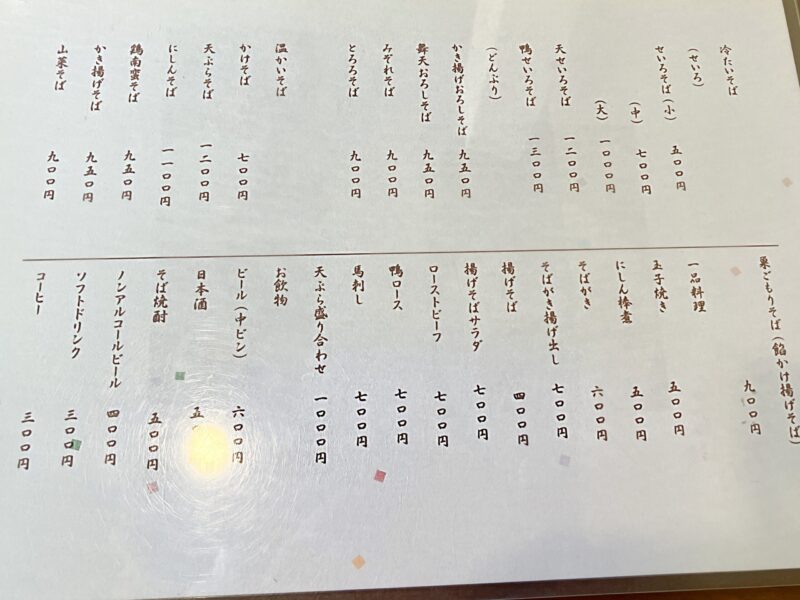 冷たいそば
（せいろ）
せいろそば（小） 五〇〇円
（中） 七〇〇円
（大） 一〇〇〇円
天せいろそば 一二〇〇円
鴨せいろそば 一三〇〇円
（どんぶり）
かき揚げおろしそば 九五〇円
舞天おろしそば 九五〇円
みぞれそば 九〇〇円
とろろそば 九〇〇円
温かいそば
かけそば 七〇〇円
天ぷらそば 一二〇〇円
にしんそば 一一〇〇円
鶏南蛮そば 九五〇円
かき揚げそば 九五〇円
山菜そば 九〇〇円
巣ごもりそば（餡かけ揚げそば） 九〇〇円
一品料理
玉子焼き 五〇〇円
にしん棒煮 五〇〇円
そばがき 六〇〇円
そばがき揚げ出し 七〇〇円
揚げそば 四〇〇円
揚げそばサラダ 七〇〇円
ローストビーフ 七〇〇円
鴨ロース 七〇〇円
馬刺し 七〇〇円
天ぷら盛り合わせ 一〇〇〇円
お飲物
ビール（中ビン） 六〇〇円
日本酒 五
そば焼酎 五〇〇円
ノンアルコールビール 四〇〇円
ソフトドリンク 三〇〇円
コーヒー 三〇〇円